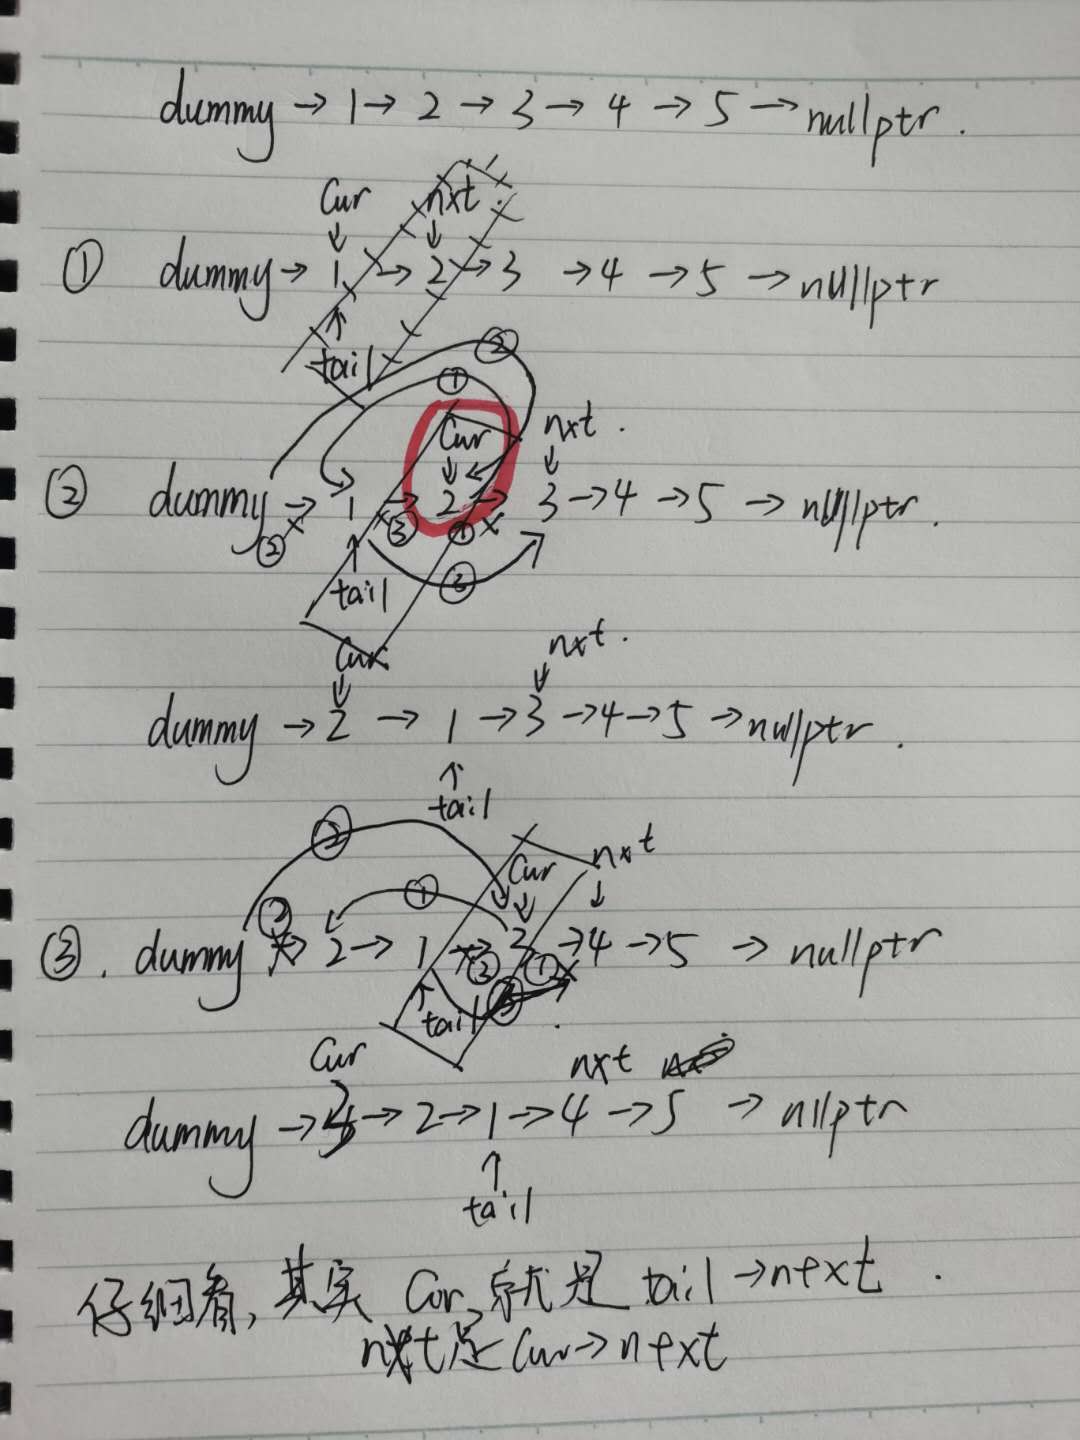 dummy → 1 → 2 → 3 → 4 → 5 → nullptr .
Cur nxt .
① dummy → 1 → 2 → 3 → 4 → 5 → nullptr
tail
②
①
Cur nxt .
② dummy → 1 → 2 → 3 → 4 → 5 → nullptr .
② ③ ①
tail ③
Cur nxt .
dummy → 2 → 1 → 3 → 4 → 5 → nullptr .
tail
②
Cur nxt
② ①
③ . dummy → 2 → 1 → 3 → 4 → 5 → nullptr
③ ①
tail ③
Cur nxt
dummy → 3 → 2 → 1 → 4 → 5 → nllptr
tail
仔细看, 其实 Cur 就是 tail → next .
nxt是 Cur → next